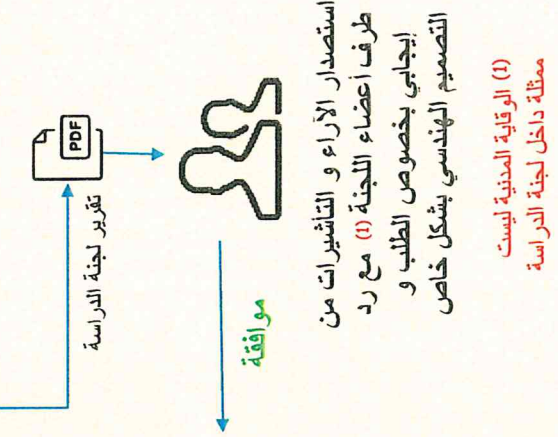 PDF
تقرير لجنة الدراسة
موافقة
استصدار الآراء و التاشيرات من
طرف أعضاء اللجنة (1) مع رد
إيجابي بخصوص الطلب و
التصميم الهندسي بشكل خاص
(1) الوقاية المدنية ليست
ممثلة داخل لجنة الدراسة